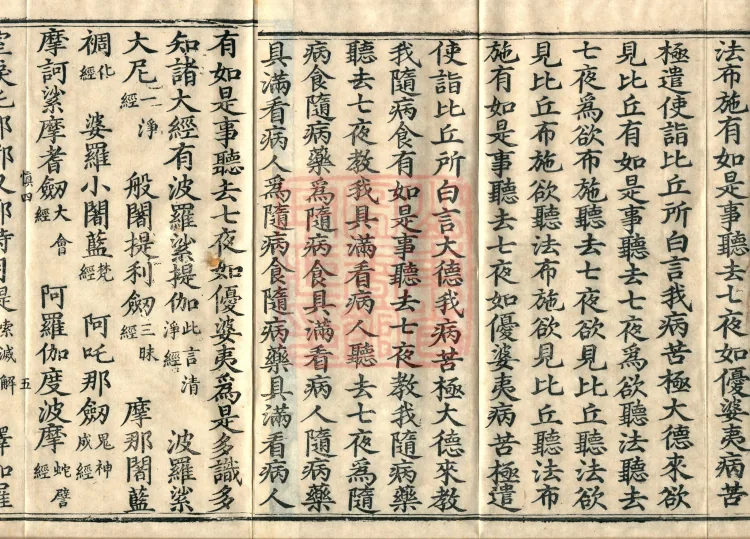 法布施有如是事聽去七夜如優婆夷病苦
極遣使詣比丘所白言我病苦極大德來欲
見比丘有如是事聽去七夜爲欲聽法聽去
七夜爲欲布施聽去七夜欲見比丘聽法欲
見比丘布施欲聽法布施欲見比丘聽法布
施有如是事聽去七夜如優婆夷病苦極遣
使詣比丘所白言大德我病苦極大德來教
我隨病食有如是事聽去七夜教我隨病藥
聽去七夜教我具滿看病人聽去七夜爲隨
病食隨病藥爲隨病食具滿看病人隨病藥
具滿看病人爲隨病食隨病藥具滿看病人
有如是事聽去七夜如優婆夷爲是多識多
知諸大經有波羅綤提伽此言清淨經 波羅綤
大尼一淨經 般闍提利劒三昧經 摩那闍藍
裯化經 婆羅小闍藍梵經 阿吒那劒鬼神成經
摩訶綤摩耆劒大會經 阿羅伽度波摩蛇譬經
慎四 五